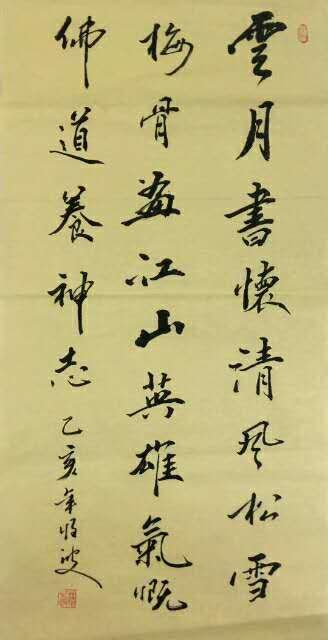 雲月書懷清風松雪
梅骨畫江山英雄氣慨
佛道養神志乙亥年